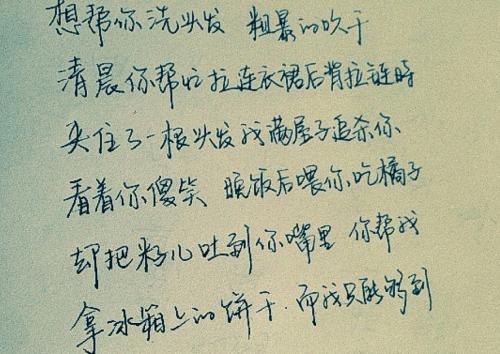 想帮你洗头发 粗暴的吹干
清晨你帮忙拉连衣裙后背拉链时
夹住了一根头发我满屋子追杀你
看着你傻笑 晚饭后喂你吃橘子
却把籽儿吐到你嘴里 你帮我
拿冰箱上的饼干.而我只能够到